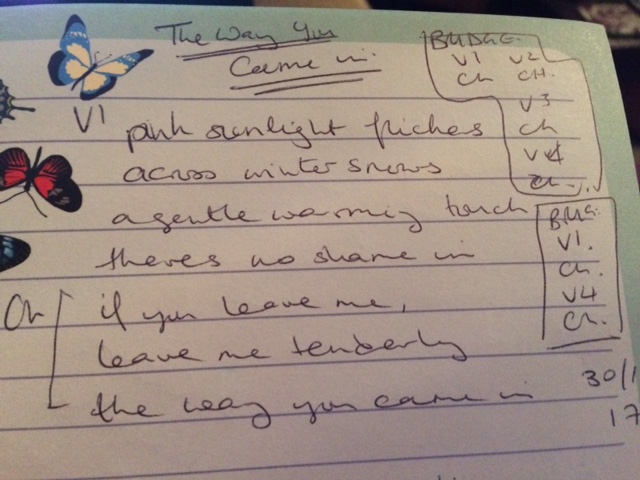 The Way You
Came in
V1
pink sunlight
across winter snows
a gentle warming touch
theres no shame in
Ch
if you leave me,
leave me tenderly
the way you came in
BRIDGE
V1 V2
Ch CH.
V3
Ch
V4
Ch.
V1.
Ch.
V4
Ch.
30/1
17